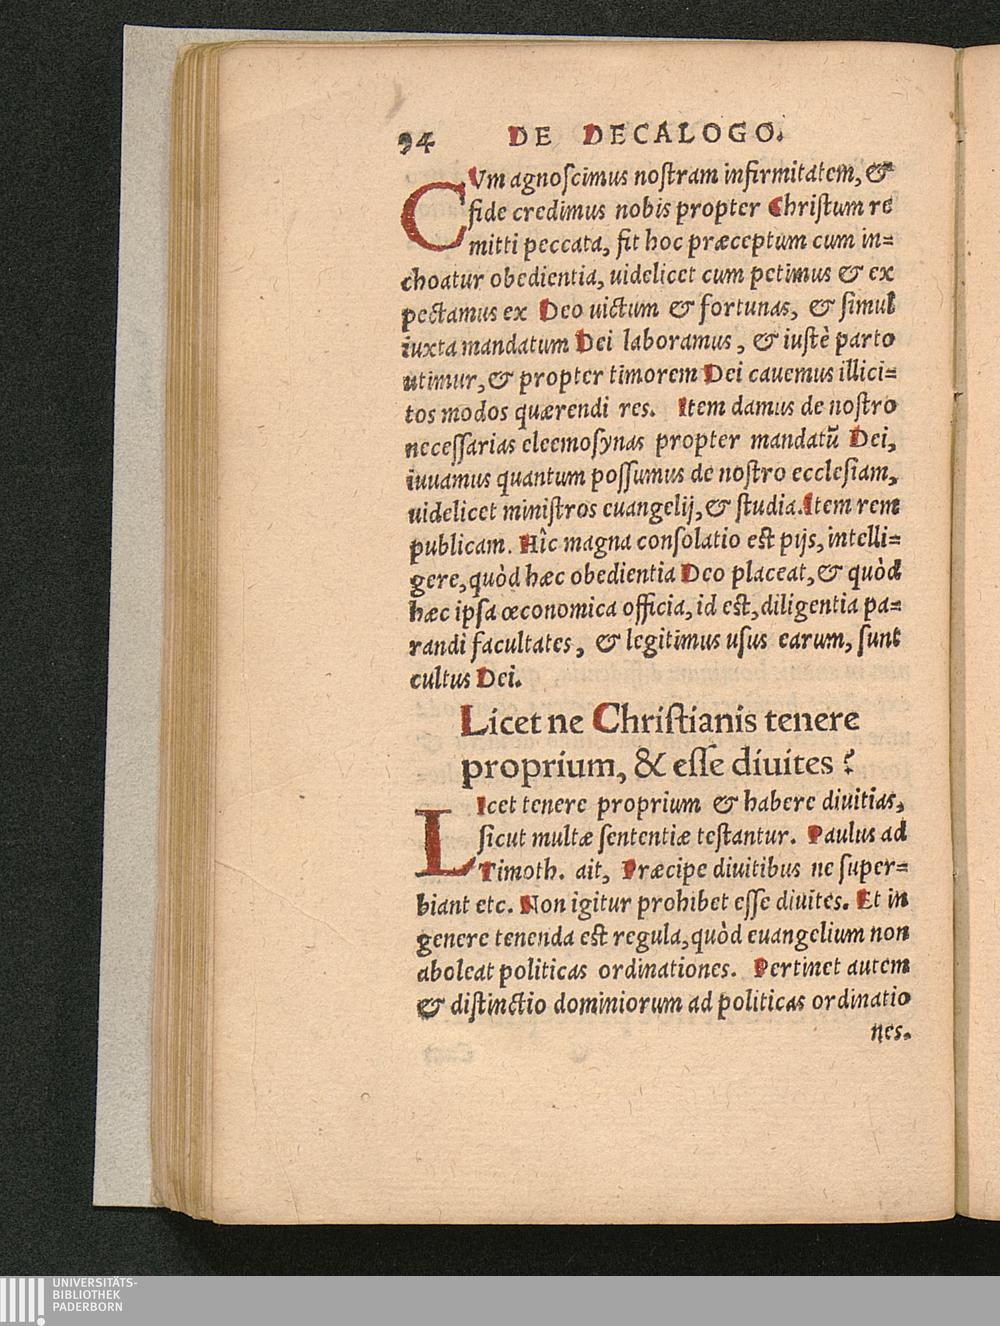 94 DE DECALOGO.
CVm agnoſcimus noſtram infirmitatem, &
fide credimus nobis propter Chriſtum re
mitti peccata, fit hoc præceptum cum in=
choatur obedientia, uidelicet cum petimus & ex
pectamus ex Deo uictum & fortunas, & ſimul
iuxta mandatum Dei laboramus, & iuſtè parto
utimur, & propter timorem Dei cauemus illici=
tos modos quærendi res. Item damus de noſtro
neceſſarias eleemoſynas propter mandatū Dei,
iuuamus quantum poſſumus de noſtro eccleſiam,
uidelicet miniſtros euangelij, & ſtudia. Item rem
publicam. Hîc magna conſolatio eſt pijs, intelli=
gere, quòd hæc obedientia Deo placeat, & quòd
hæc ipſa œconomica officia, id eſt, diligentia pa=
randi facultates, & legitimus uſus earum, ſunt
cultus Dei.
Licet ne Chriſtianis tenere
proprium, & eſſe diuites?
LIcet tenere proprium & habere diuitias,
ſicut multæ ſententiæ teſtantur. Paulus ad
Timoth. ait, Præcipe diuitibus ne ſuper=
biant etc. Non igitur prohibet eſſe diuites. Et in
genere tenenda eſt regula, quòd euangelium non
aboleat politicas ordinationes. Pertinet autem
& diſtinctio dominiorum ad politicas ordinatio
nes.
UNIVERSITÄTS-
BIBLIOTHEK
PADERBORN